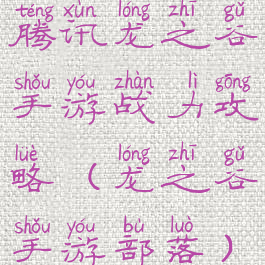 téng xùn lóng zhī gǔ
腾讯龙之谷
shǒu yóu zhàn lì gōng
手游战力攻
lüè lóng zhī gǔ
略（龙之谷
shǒu yóu bù luò
手游部落）